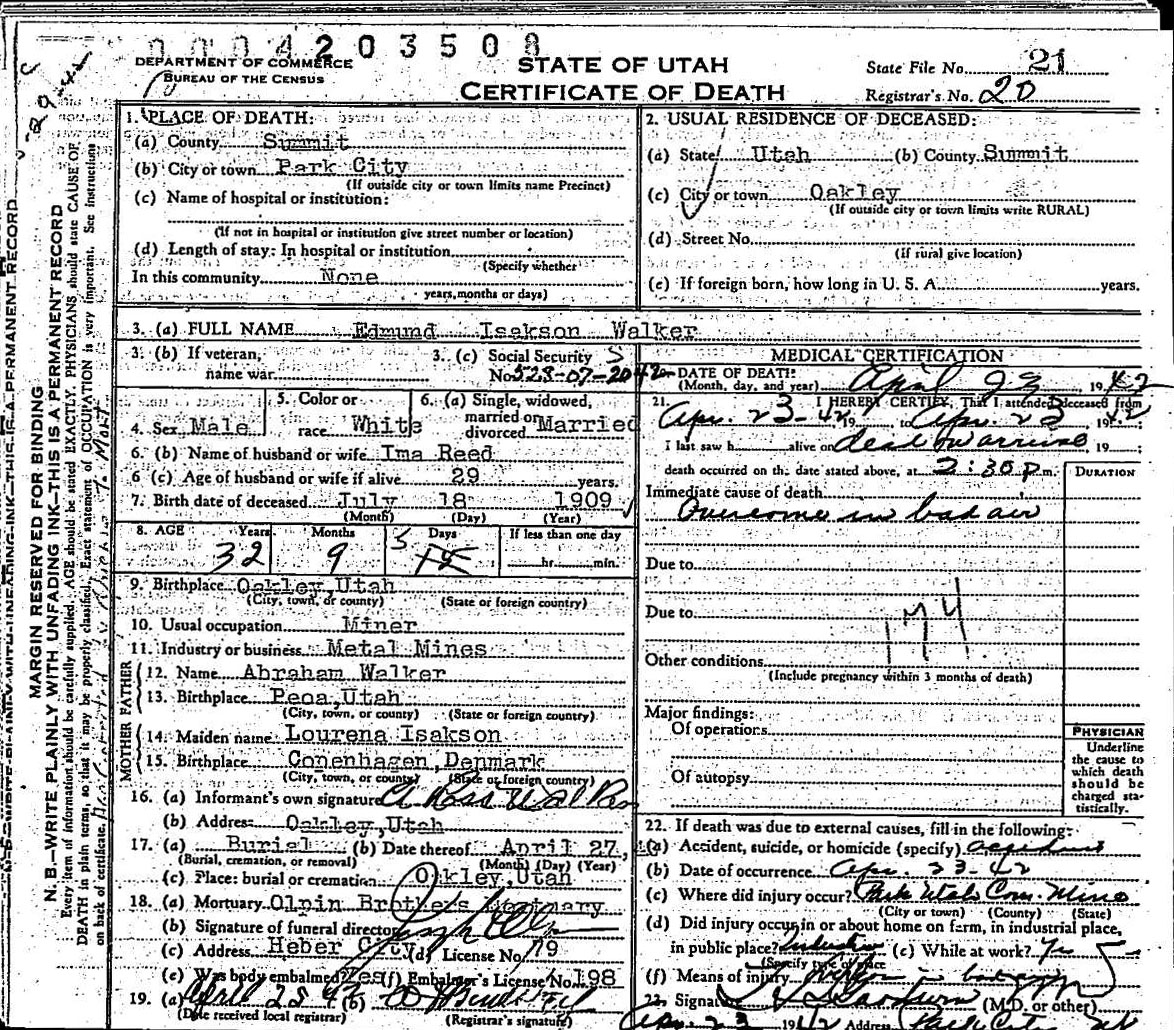 0004203508
DEPARTMENT OF COMMERCE
BUREAU OF THE CENSUS
STATE OF UTAH
CERTIFICATE OF DEATH
State File No. 21
Registrar's No. 20
MARGIN RESERVED FOR BINDING
N. B.—WRITE PLAINLY WITH UNFADING INK—THIS IS A PERMANENT RECORD
Every item of information should be carefully supplied. AGE should be stated EXACTLY. PHYSICIANS should state CAUSE OF
DEATH in plain terms, so that it may be properly classified. Exact statement of OCCUPATION is very important. See instructions
on back of certificate.
1. PLACE OF DEATH:
(a) County Summit
(b) City or town Park City
(If outside city or town limits name Precinct)
(c) Name of hospital or institution:
(If not in hospital or institution give street number or location)
(d) Length of stay: In hospital or institution
(Specify whether
In this community None
years, months or days)
2. USUAL RESIDENCE OF DECEASED:
(a) State Utah (b) County Summit
(c) City or town Oakley
(If outside city or town limits write RURAL)
(d) Street No.
(If rural give location)
(e) If foreign born, how long in U. S. A. years.
3. (a) FULL NAME Edmund Isakson Walker
3. (b) If veteran,
name war
3. (c) Social Security
No. 528-07-2042
4. Sex Male
5. Color or
race White
6. (a) Single, widowed,
married or
divorced Married
6. (b) Name of husband or wife Ima Reed
6 (c) Age of husband or wife if alive 29 years.
7. Birth date of deceased July 18 1909
(Month) (Day) (Year)
8. AGE Years Months Days If less than one day
32 9 5 hr. min.
9. Birthplace Oakley, Utah
(City, town, or county) (State or foreign country)
10. Usual occupation Miner
11. Industry or business Metal Mines
FATHER
12. Name Abraham Walker
13. Birthplace Peoa, Utah
(City, town, or county) (State or foreign country)
MOTHER
14. Maiden name Lourena Isakson
15. Birthplace Copenhagen, Denmark
(City, town, or county) (State or foreign country)
16. (a) Informant's own signature A Ross Walker
(b) Address Oakley, Utah
17. (a) Burial (b) Date thereof April 27,
(Burial, cremation, or removal) (Month) (Day) (Year)
(c) Place: burial or cremation Oakley, Utah
18. (a) Mortuary Olpin Brothers Mortuary
(b) Signature of funeral director
(c) Address Heber City (d) License No. 79
(e) Was body embalmed? Yes (f) Embalmer's License 198
19. (a) April 25 42 (b)
(Date received local registrar) (Registrar's signature)
MEDICAL CERTIFICATION
DATE OF DEATH:
(Month, day, and year) April 23, 1942
21. I HEREBY CERTIFY, That I attended deceased from
Apr. 23-42 19 to Apr. 23 1942
I last saw h alive on dead on arrival, 19
death occurred on the date stated above, at 2:30 p.m.
DURATION
Immediate cause of death
Overcome in bad air
Due to
Due to
174
Other conditions
(Include pregnancy within 3 months of death)
Major findings:
Of operations
Of autopsy
PHYSICIAN
Underline
the cause to
which death
should be
charged sta-
tistically.
22. If death was due to external causes, fill in the following:
(a) Accident, suicide, or homicide (specify) accident
(b) Date of occurrence Apr. 23-42
(c) Where did injury occur? Park Utah Con. Mine
(City or town) (County) (State)
(d) Did injury occur in or about home on farm, in industrial place,
in public place? Industrial (e) While at work? Yes
(Specify type of place
(f) Means of injury
23. Signature (M.D. or other)
Apr. 23 1942 Address Park City